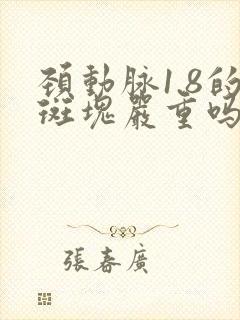 頚動脉1.8的
斑塊嚴重吗
張春廣